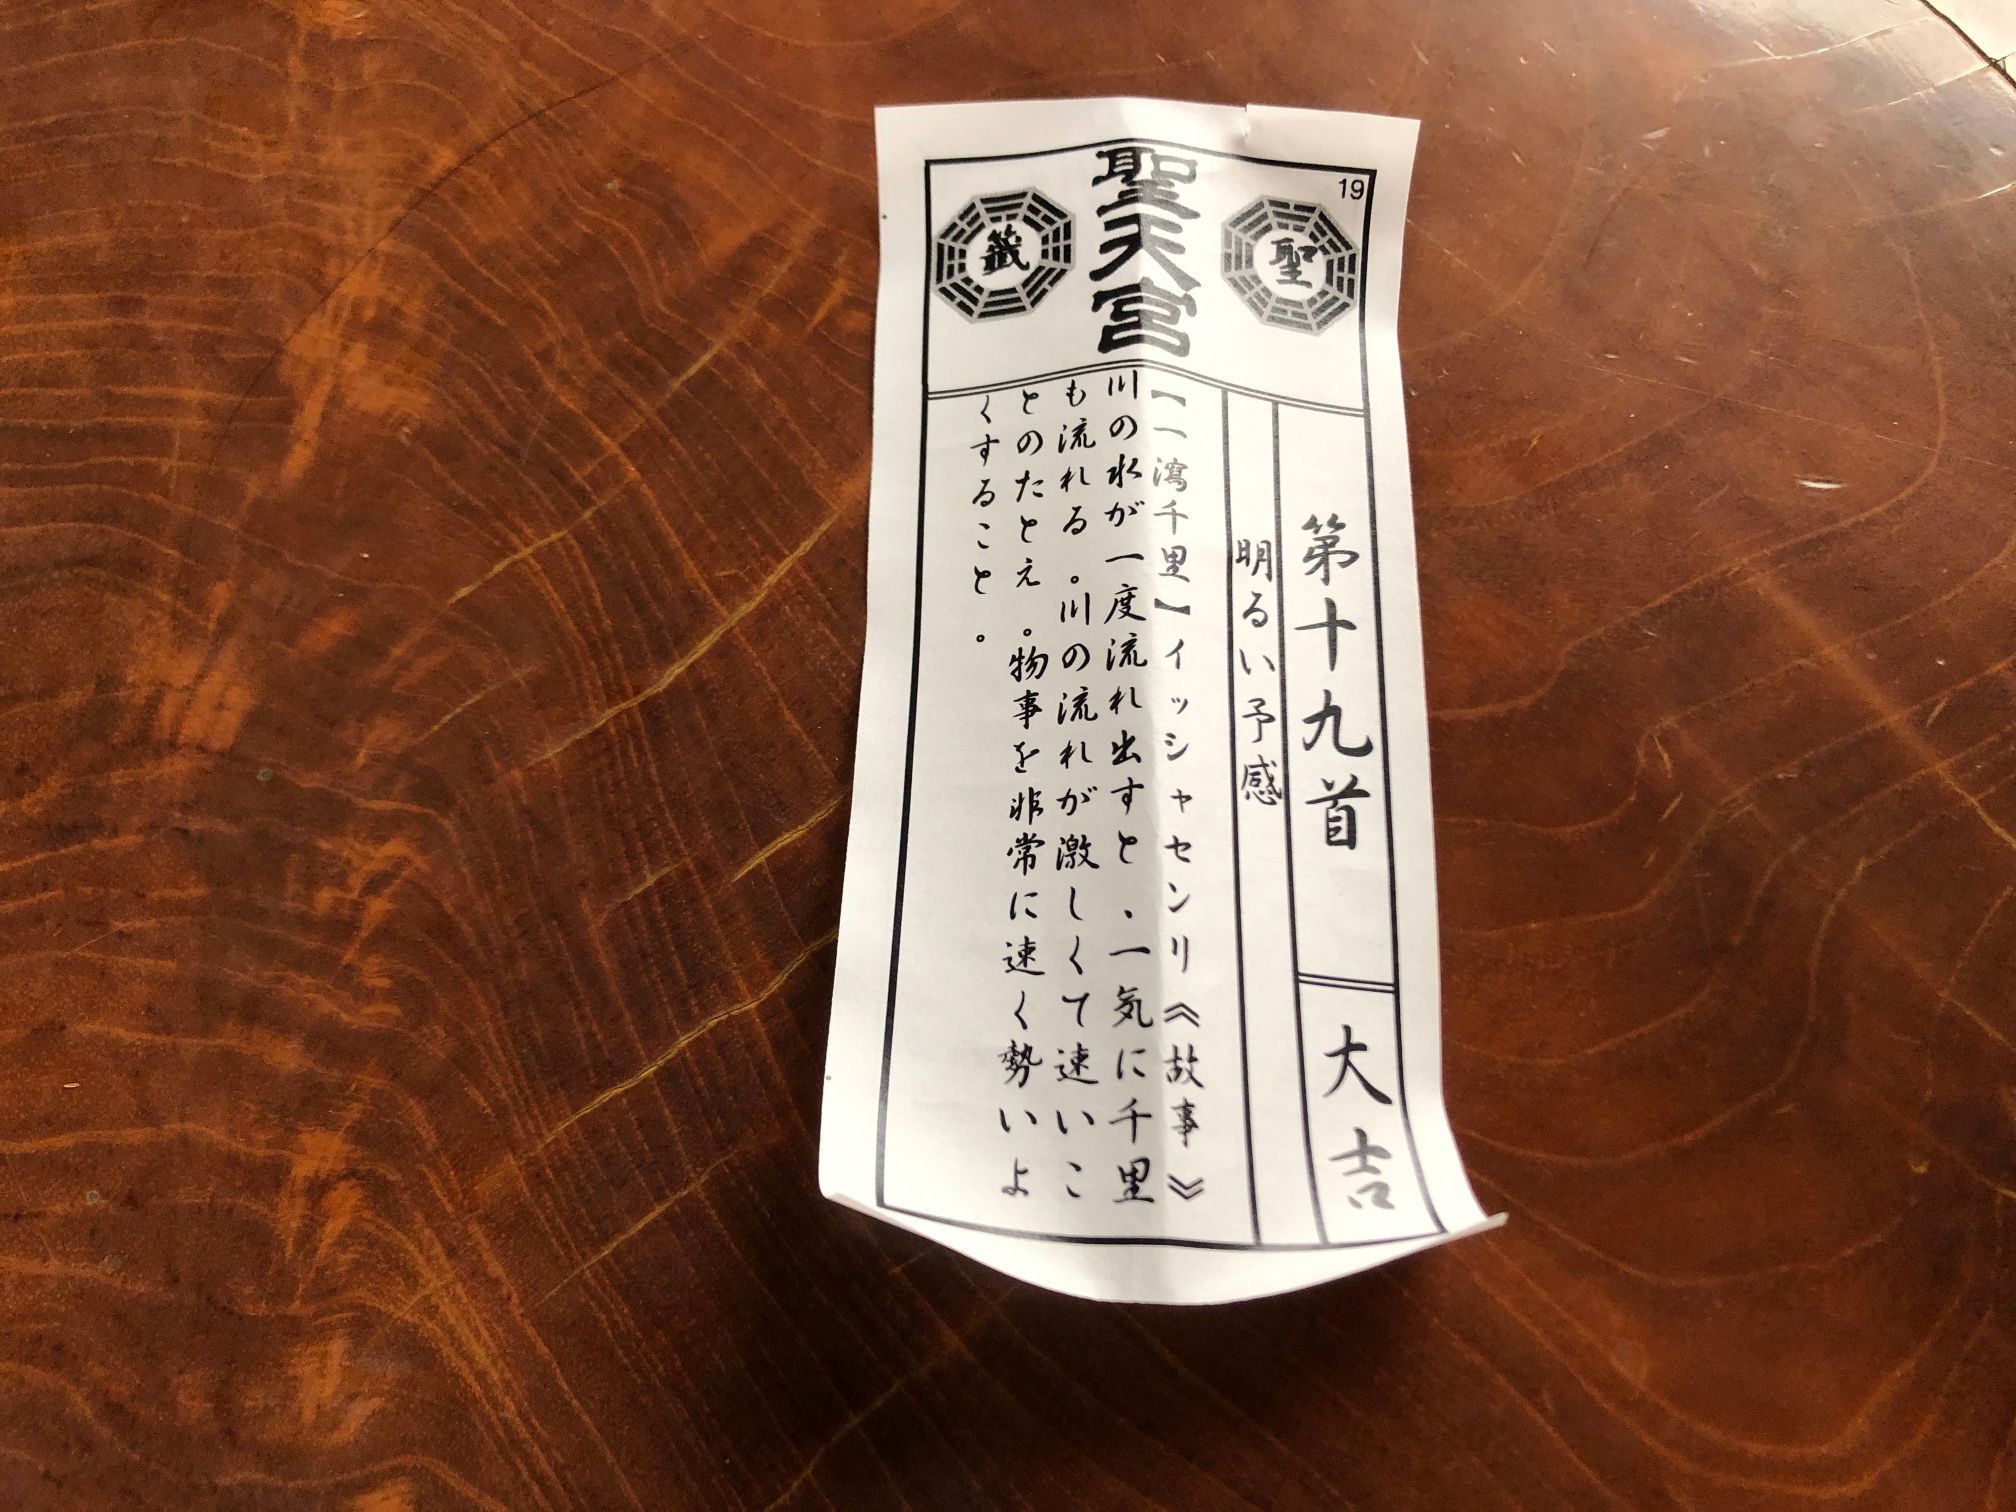 19
聖
聖天宮
籤
第十九首
大吉
明るい予感
【一瀉千里】イッシャセンリ《故事》
川の水が一度流れ出すと、一気に千里
も流れる。川の流れが激しくて速いこ
とのたとえ。物事を非常に速く勢いよ
くすること。